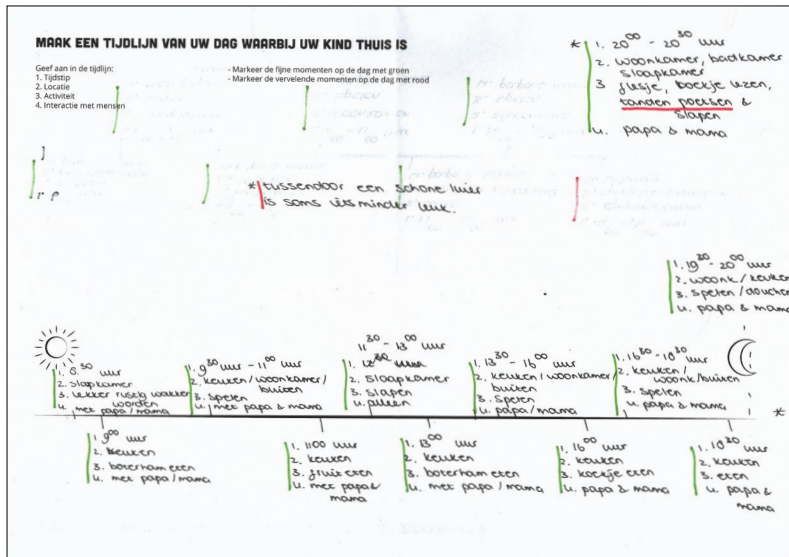 MAAK EEN TIJDLIJN VAN UW DAG WAARBIJ UW KIND THUIS IS
Geef aan in de tijdlijn:
1. Tijdstip
2. Locatie
3. Activiteit
4. Interactie met mensen
- Markeer de fijne momenten op de dag met groen
- Markeer de vervelende momenten op de dag met rood
* 1. 20 00 - 20 30 uur
2. woonkamer, badkamer
slaapkamer
3 flesje, boekje lezen,
tanden poetsen &
slapen
4. papa & mama
* tussendoor een schone luier
is soms iets minder leuk.
1. 19 30 - 20 00 uur
2. woonk/keuken
3. spelen/douchen
4. papa & mama
1. 8 30 uur
2. slaapkamer
3. lekker rustig wakker
worden
4. met papa/mama
1. 9 30 uur - 11 00 uur
2. keuken/woonkamer/
buiten
3. spelen
4. met papa & mama
11 30 - 13 00
1. uur
2. slaapkamer
3. slapen
4. alleen
1. 13 30 - 16 00 uur
2. keuken/woonkamer/
buiten
3. spelen
4. papa/mama
1. 16 30 - 18 30 uur
2. keuken/
woonk/buiten
3. spelen
4. papa & mama
*
1. 9 00 uur
2. keuken
3. boterham eten
4. met papa/mama
1. 11 00 uur
2. keuken
3. fruit eten
4. met papa &
mama
1. 13 00 uur
2. keuken
3. boterham eten
4. met papa/mama
1. 16 00 uur
2. keuken
3. koekje eten
4. papa & mama
1. 18 30 uur
2. keuken
3. eten
4. papa &
mama